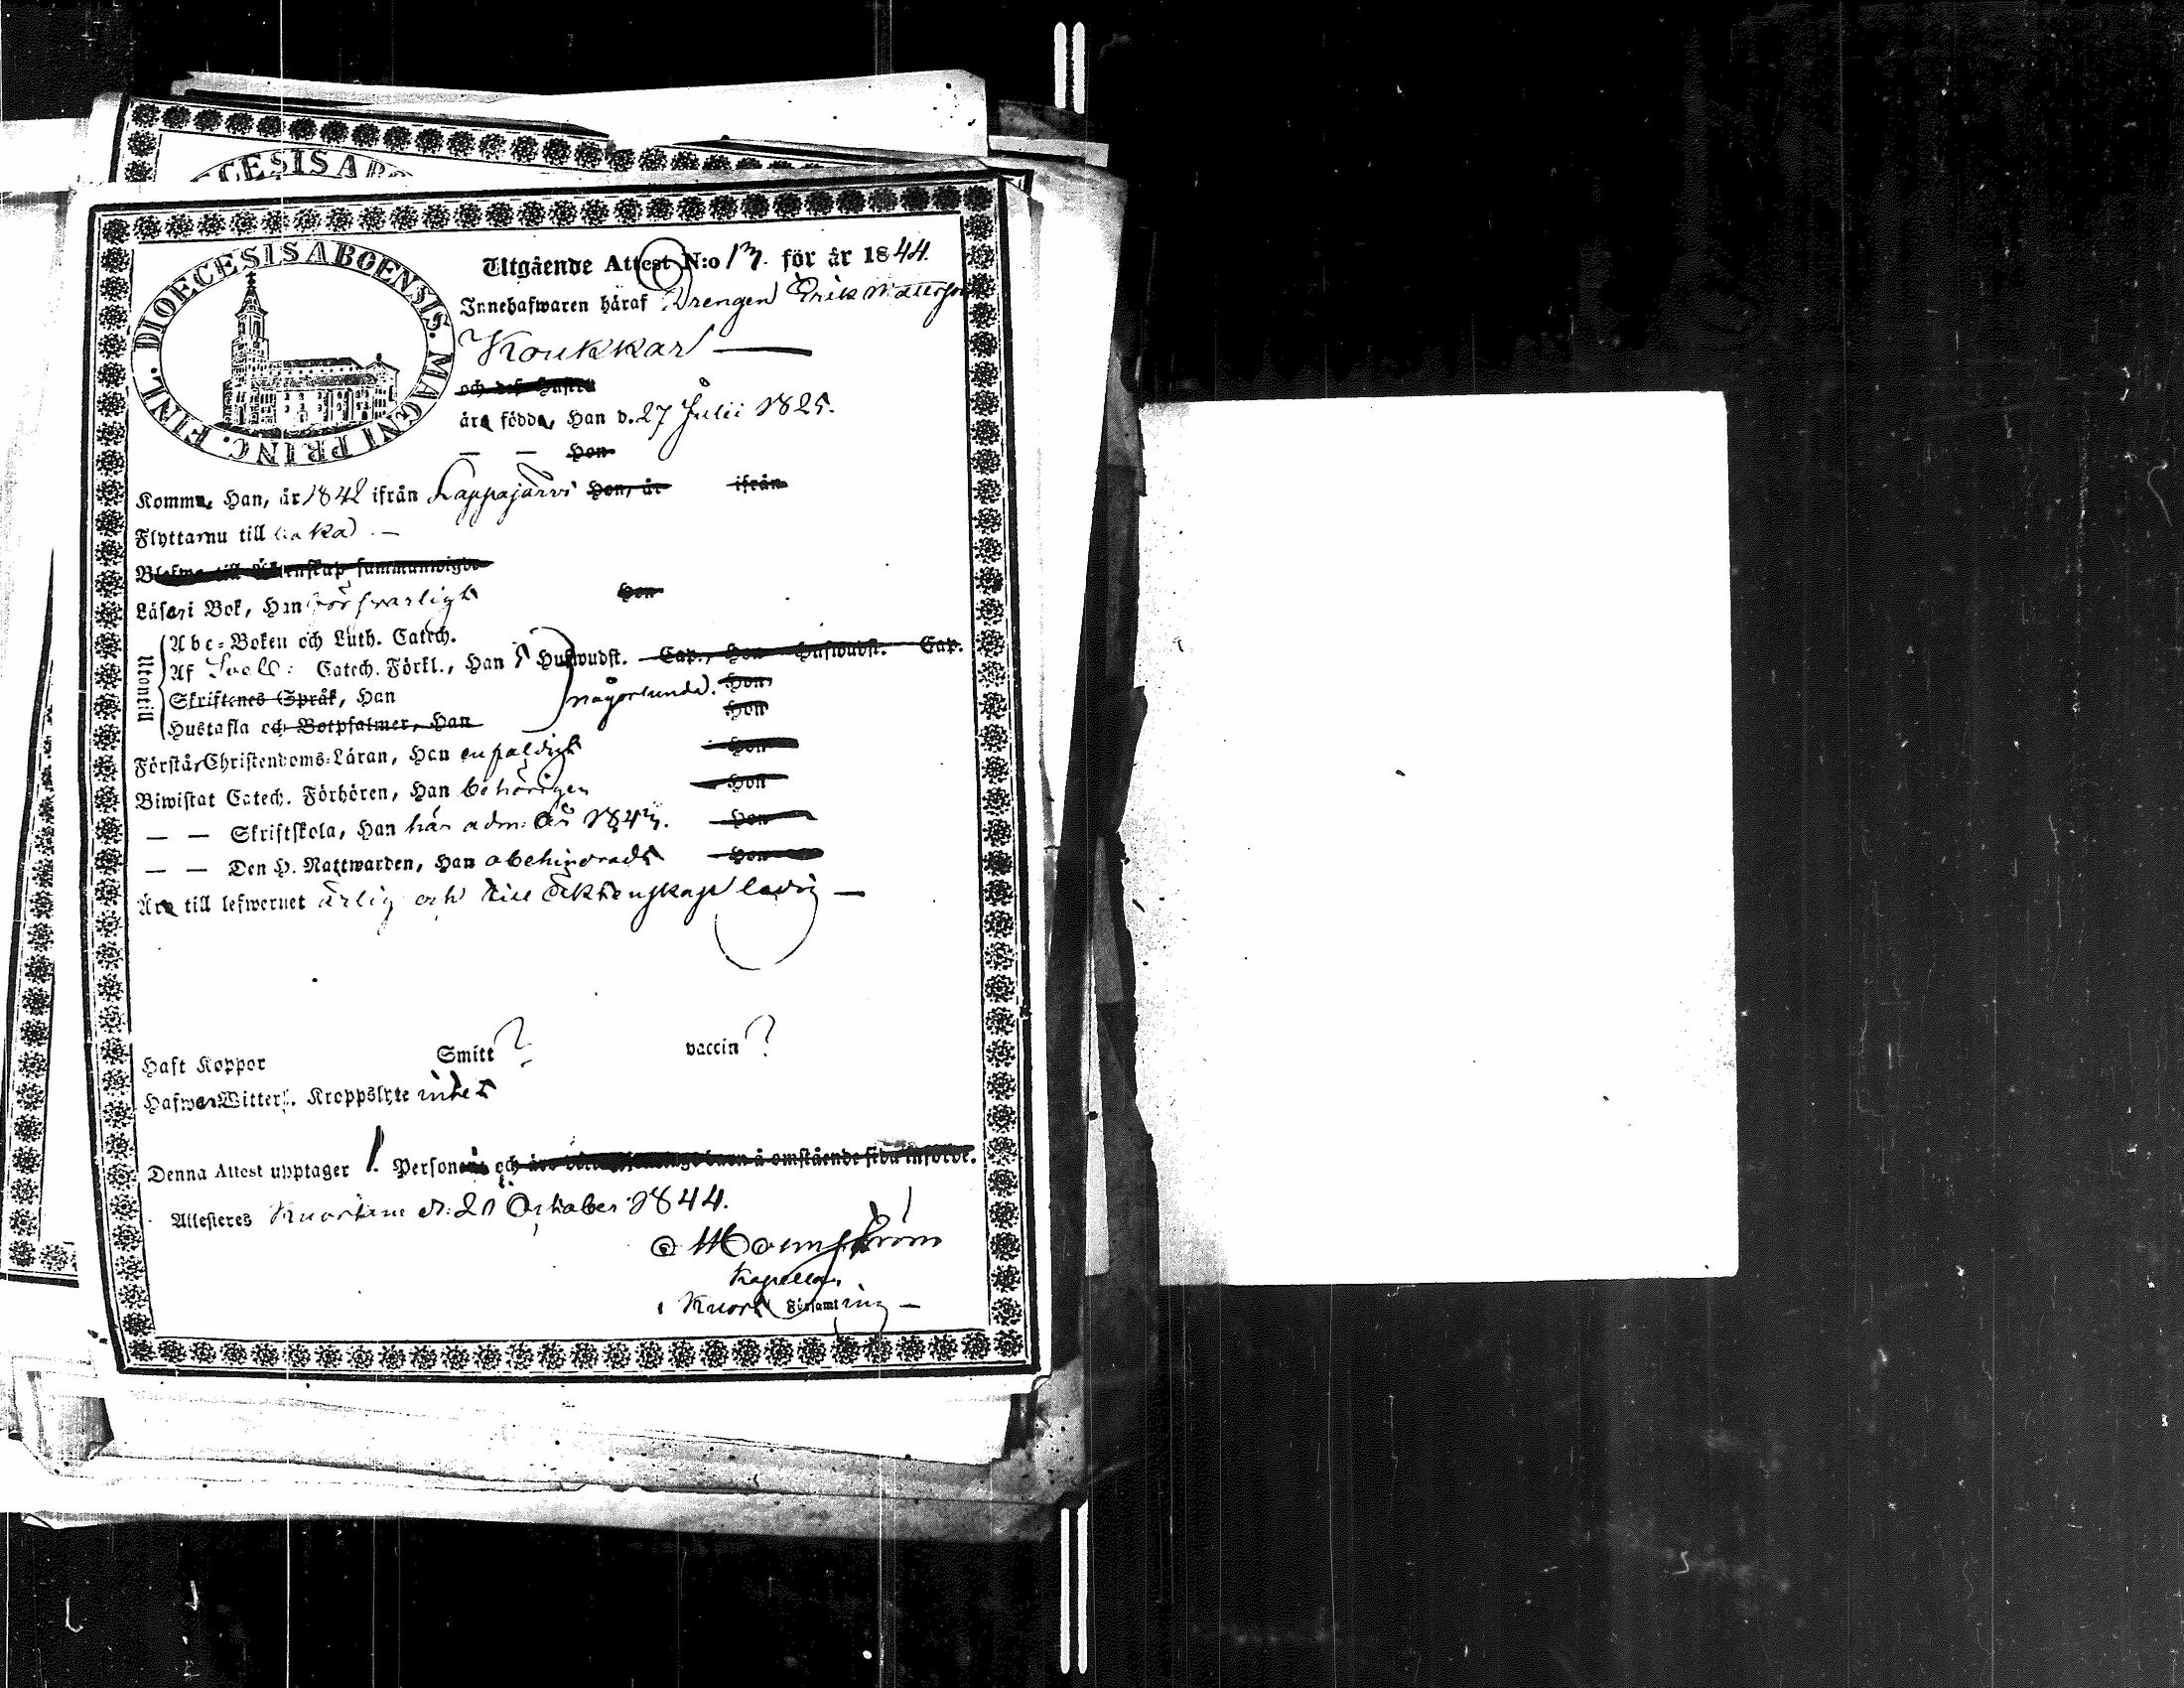 CESIS ABO
DIOECESIS ABOENSIS. MAGNI PRINC. FINL.
Utgående Attest N:o 13. för år 1844.
Innehafwaren häraf Drengen Erik Mattsson
Koukkar
och deß Hustru
äro födde, Han d. 27 Julii 1825.
— — Hon
Komme, Han, år 1842 ifrån Lappajärvi Hon, år ifrån
Flytta nu till baka —
Läser i Bok, Han försvarligt Hon
Utontill
Abc-Boken och Luth. Catech.
Af Svebil: Catech. Förkl., Han 5 Hufwudst. Cap., Hon Hufwudst. Cap.
Skriftenes Språk, Han någorlunda. Hon
Hustafla och Botpsalmer, Han Hon
Förstår Christendoms-Läran, Han enfaldigt Hon
Biwistat Catech. Förhören, Han behörigen Hon
— — Skriftskola, Han här adm: år 1843. Hon
— — Den H. Nattwarden, Han obehindradt Hon
Äro till lefwernet ärlig och till äktenskap ledig —
Haft Koppor Smitt ? vaccin ?
Hafwa Witterl. Kroppslyte intet
Denna Attest upptager 1. Personer och å omstående sida införde.
Attesteras Kuortane d. 21 October 1844.
Kapellan
i Kuort Församling —